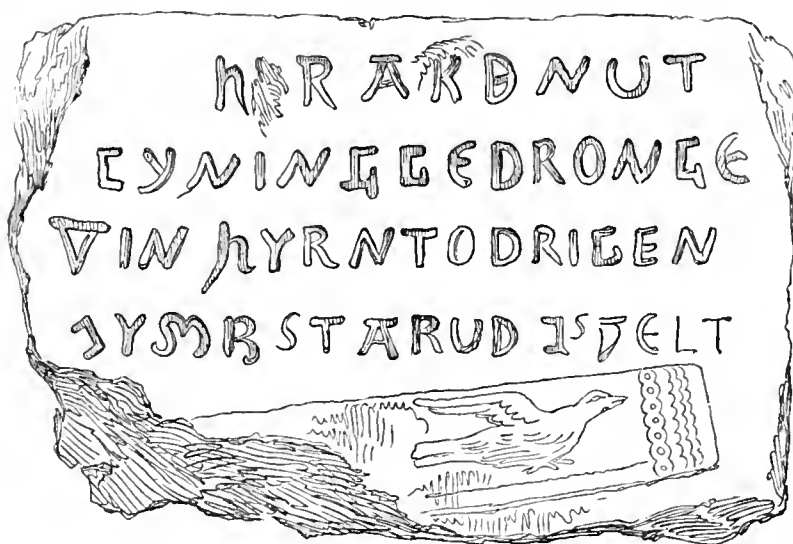 HERARÐNUT
CYNINGGEDRONGE
VIN HYRNTODRIGEN
⁊YMBSTARUD ⁊SVELT